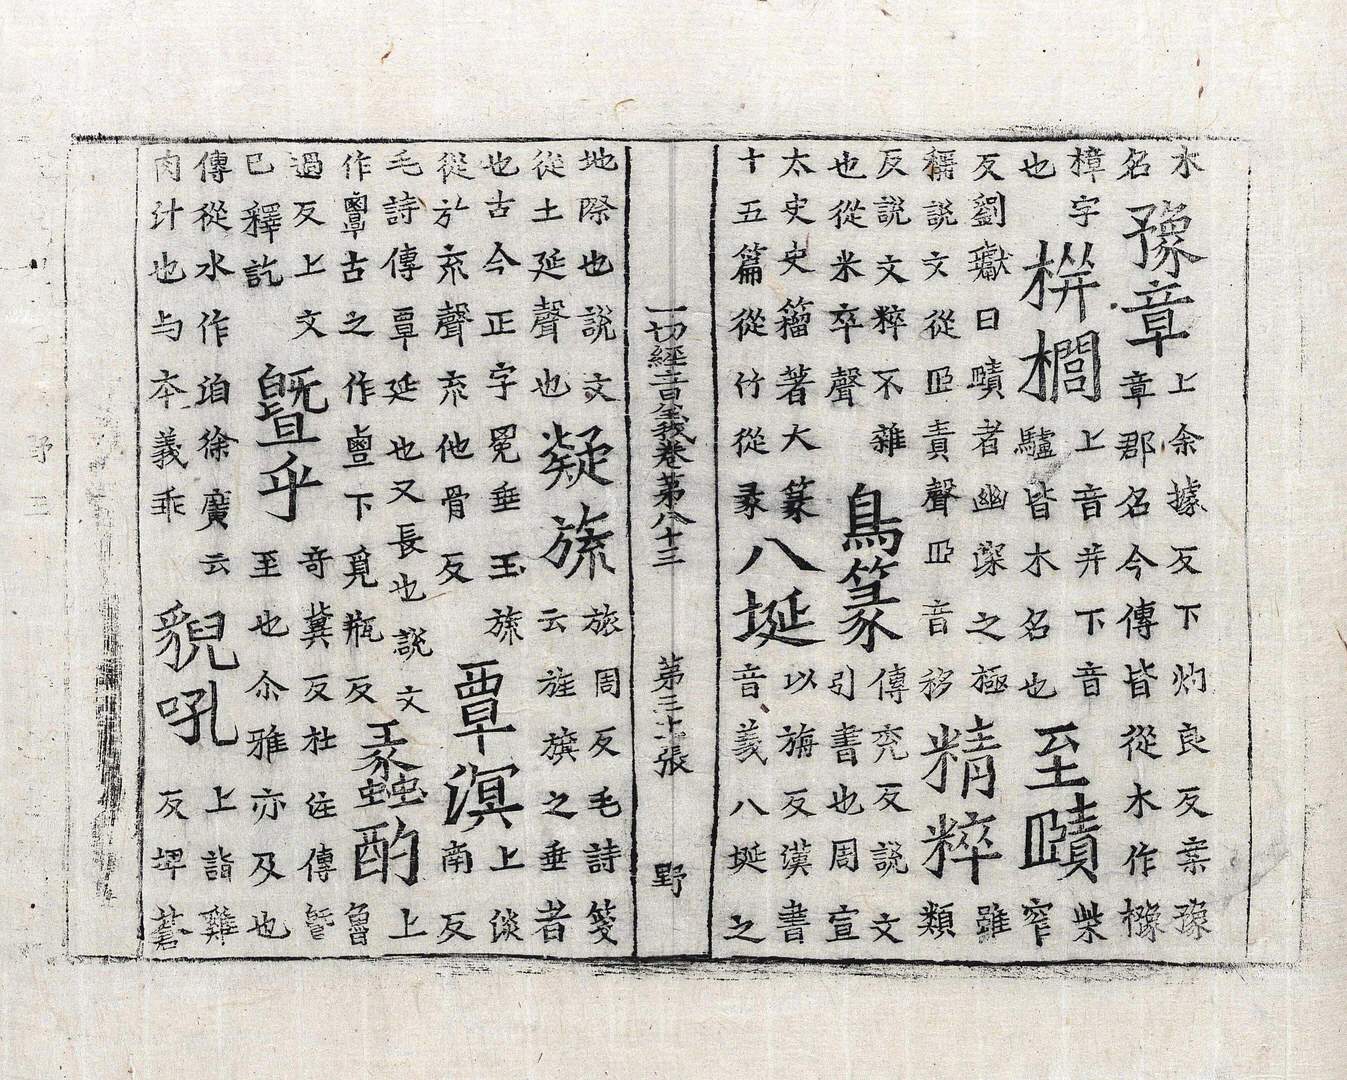 水
名
豫章
上余據反下灼良反案豫
章郡名今傳皆從木作櫲
樟字
也
栟櫚
上音并下音
驢皆木名也
至賾
柴
窄
反劉瓛曰賾者幽深之極
稱說文從𦣞責聲𦣞音移
精粹
雖
類
反說文粹不雜
也從米卒聲
鳥篆
傳兖反說文
引書也周宣
太史史籀著大篆
十五篇從竹從彖
八埏
以旃反漢書
音義八埏之
一切經音義卷第八十三 第三十張 野
地際也說文
從土延聲也
凝旒
旅周反毛詩箋
云旌旗之垂者
也古今正字冕垂玉旒
從㫃㐬聲㐬他骨反
覃溟
上淡
南反
毛詩傳覃延也又長也說文
作𪉷古之作𧟹下覓瓶反
蠡酌
上
魯
過反上文
已釋訖
曁乎
奇冀反杜注傳曁
至也尒雅亦及也
傳從水作洎徐廣云
肉汁也与本義乖
貎吼
上詣雞
反埤蒼